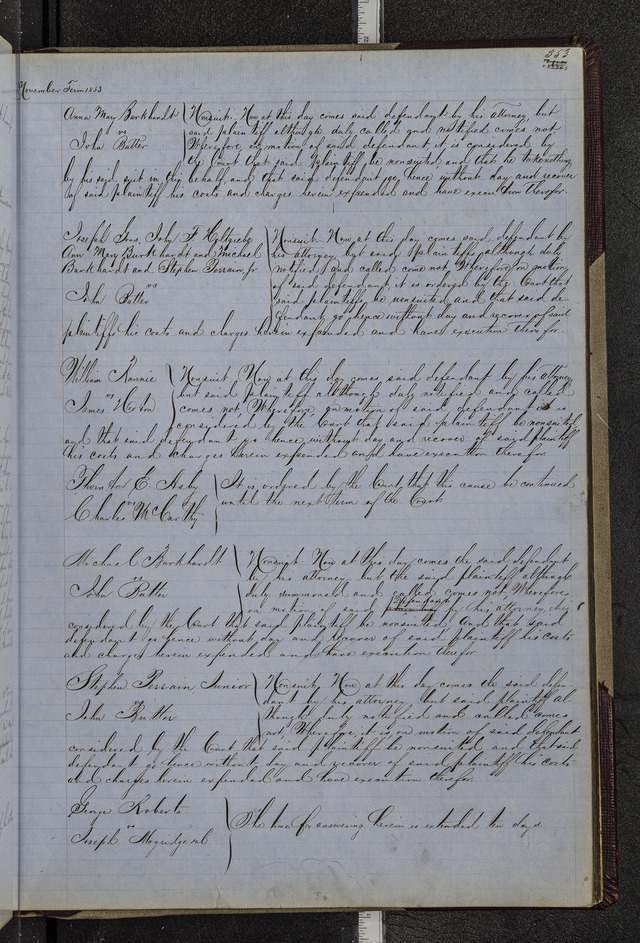 353
November Term 1853
Anna May Burkhardt Nonsuit. Now at this day comes said defendant by his attorney, but
vs said plaintiff although duly called and notified comes not
John Potter Wherefore, on motion of said defendant it is considered by
the Court that said plaintiff be nonsuited and that he take nothing
by his said suit in this behalf, and that said defendant go hence without day and recover
of said plaintiff his costs and charges herein expended and have execution therefor.
Joseph John F Holtgrebe Nonsuit. Now at this day comes said defendant by
Ann Mary Burkhardt and Michael his attorney but said plaintiffs although duly
Burkhardt and Stephen Perrain jr notified and called come not Wherefore on motion
vs of said defendant it is ordered by the Court that
John Potter said plaintiffs be nonsuited and that said de-
fendant go hence without day and recover of said
plaintiffs his costs and charges herein expended and have execution therefor.
William Rannie Nonsuit Now at this day comes said defendant by his attorney
vs but said plaintiff although duly notified and called
James Horton comes not, Wherefore, on motion of said defendant it is
considered by the Court that said plaintiff be nonsuited
and that said defendant go hence without day and recover of said plaintiff
his costs and charges herein expended and have execution therefor
Thornton E. It is ordered by the Court, that this cause be continued
vs until the next term of the Court.
Charles McCarthy
Michael Burkhardt Nonsuit Now at this day comes the said defendant
vs by his attorney but the said plaintiff although
John Potter duly summoned and called comes not Wherefore
on motion of said defendant by his attorney it is
considered by the Court that said plaintiff be nonsuited And that said
defendant go hence without day and recover of said plaintiff his costs
and charges herein expended and have execution therefor
Stephen Perrain Junior Nonsuit, Now at this day comes the said defen-
vs dant by his attorney but said plaintiff al-
John Potter though duly notified and called comes
not, Wherefore, it is on motion of said defendant
considered by the Court that said plaintiff be nonsuited, and that said
defendant go hence without day and recover of said plaintiff his costs
and charges herein expended and have execution therefor
George Roberts The time for answering herein is extended ten days
vs
Joseph